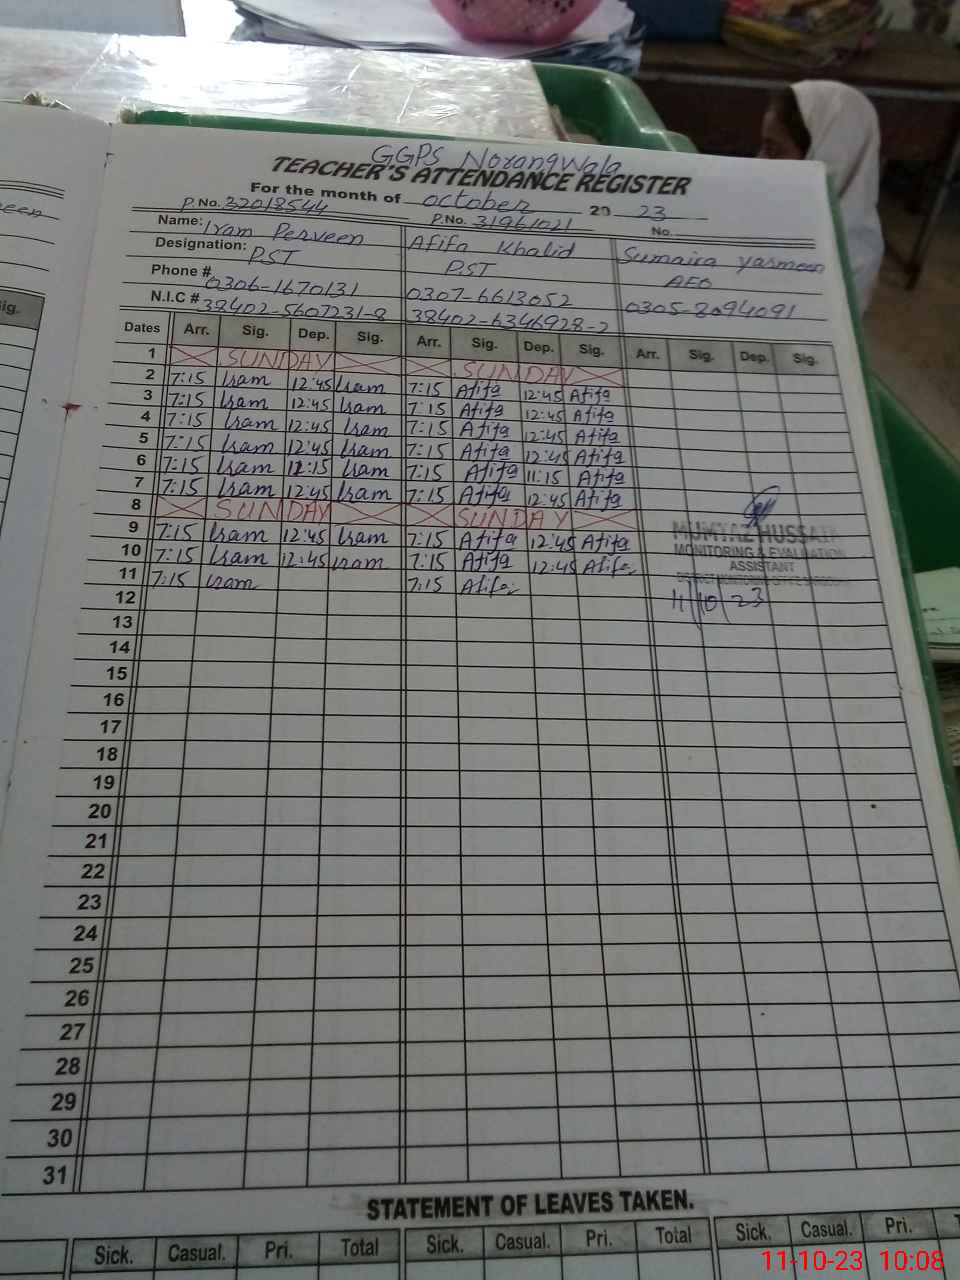 GGPS Norangwala
TEACHER'S ATTENDANCE REGISTER
For the month of october 20 23
P.No. 32018544 P.No. 31961021 No.
Name: Iram Perveen Afifa Khalid Sumaira yasmeen
Designation: PST PST AEO
Phone # 0306-1670131 0307-6613052 0305-8094091
N.I.C # 38402-5607231-8 38402-6346928-2
Dates Arr. Sig. Dep. Sig. Arr. Sig. Dep. Sig. Arr. Sig. Dep. Sig.
1 SUNDAY SUNDAY
2 7:15 Iram 12:45 Iram 7:15 Afifa 12:45 Afifa
3 7:15 Iram 12:45 Iram 7:15 Afifa 12:45 Afifa
4 7:15 Iram 12:45 Iram 7:15 Afifa 12:45 Afifa
5 7:15 Iram 12:45 Iram 7:15 Afifa 12:45 Afifa
6 7:15 Iram 11:15 Iram 7:15 Afifa 11:15 Afifa
7 7:15 Iram 12:45 Iram 7:15 Afifa 12:45 Afifa
8 SUNDAY SUNDAY
9 7:15 Iram 12:45 Iram 7:15 Afifa 12:45 Afifa
10 7:15 Iram 12:45 Iram 7:15 Afifa 12:45 Afifa
11 7:15 Iram 7:15 Afifa
MUMTAZ HUSSAIN
MONITORING & EVALUATION
ASSISTANT
DISTRICT MONITORING OFFICE
11/10/23
12
13
14
15
16
17
18
19
20
21
22
23
24
25
26
27
28
29
30
31
STATEMENT OF LEAVES TAKEN.
Sick. Casual. Pri. Total Sick. Casual. Pri. Total Sick. Casual. Pri.
11-10-23 10:08